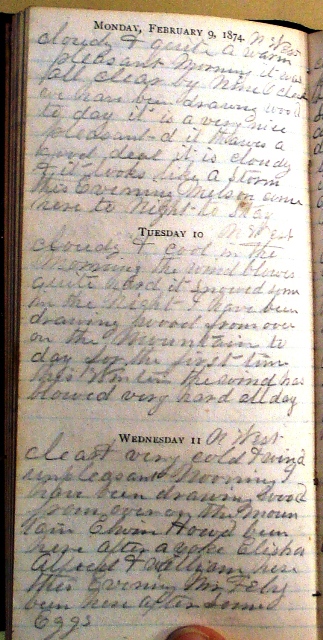 Monday, February 9, 1874. N West
cloudy & quite a warm
pleasant Morning it was
all clear by Noon & clear
we han been drawing wood
to day it is a very nice
pleasant d it thawes a
good deal it is cloudy
& it looks like a storm
this Evening Nelson came
here to Night to Stay
Tuesday 10 N West
cloudy & cool in the
Morning the wind blows
quite hard it snowed some
in the Night I have been
drawing wood from over
on the Mountain to
day for the first time
this Winter the wind has
blowed very hard all day
Wednesday 11 N West
clear & very cold & wind
unpleasant Morning I
have been drawing Wood
from over on the Moun
tain Elwin Houd been
here after a yoke Elisha
Alfred & William here
this Evening Mr Fely
been here after some
Eggs